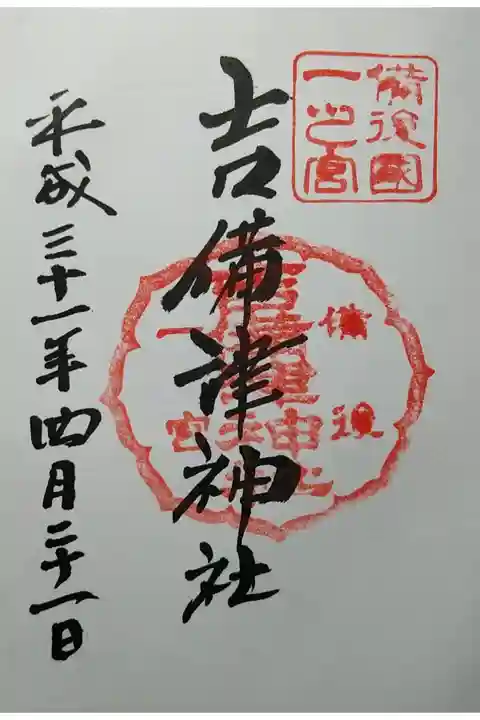 備後國
一之宮
吉備津神社
備後
一宮
吉備津神社
平成三十一年四月二十一日